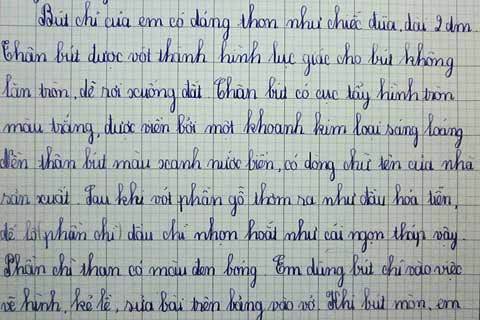 Bút chì của em có dáng thon như chiếc đũa, dài 2 dm.
Thân bút được vót thành hình lục giác cho bút không
lăn tròn, dễ rơi xuống đất. Thân bút có cục tẩy hình tròn
màu trắng, được viền bởi một khoanh kim loại sáng loáng
Nền thân bút màu xanh nước biển, có dòng chữ tên của nhà
sản xuất. Sau khi vót phần gỗ thơm ra như dầu hỏa tiễn,
để lộ (phần chì) đầu chì nhọn hoắt như cái ngọn tháp vậy.
Phần chì than có màu đen bóng. Em dùng bút chì vào việc
vẽ hình, kẻ lề, sửa bài trên bảng vào vở. Khi bút mòn, em